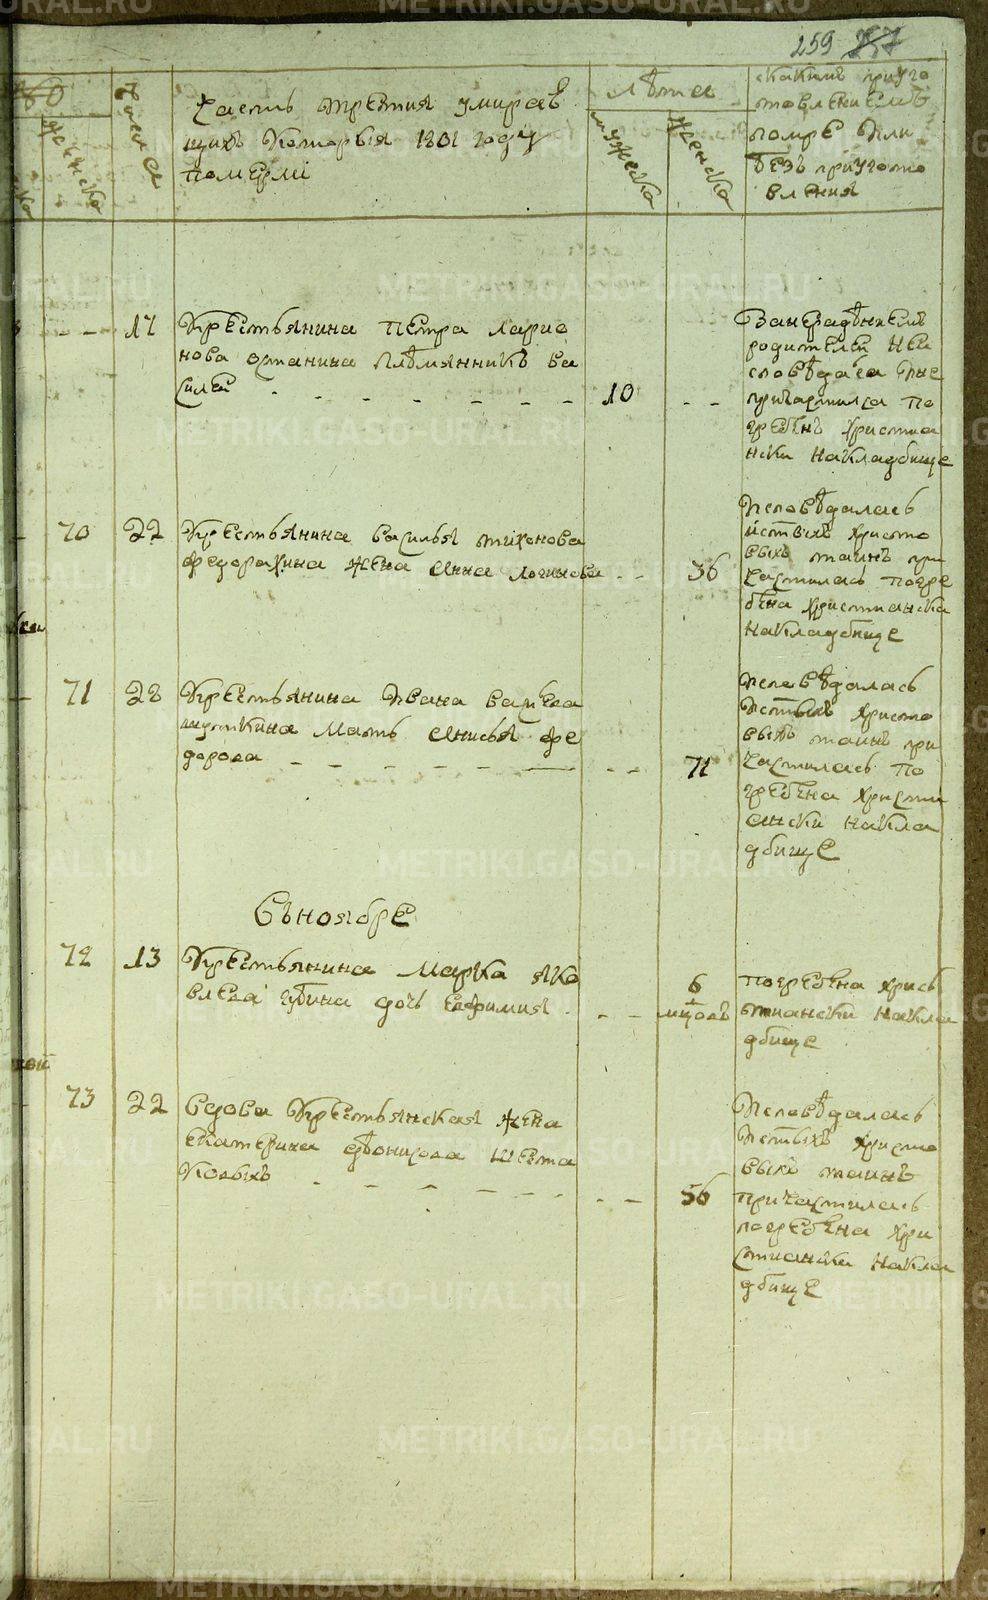 259
женска
число
часть третия умираю
щихъ которыя 1801 году
померли
лѣта
мужеска
женска
скакимъ приуго
товлениемъ
помре или
безъ приугото
вления
17
Крестьянина Петра Ларио
нова Останина племянникъ Ва
силей
10
Занерадѣниемъ
родителей неи
сповѣдася ине
причастился по
гребенъ христиа
нски накладбище
70
22
Крестьянина василья тихонова
жена анна логинова
36
Исповѣдалась
истыхъ христо
выхъ таинъ при
частилась погре
бена христианска
накладбище
71
28
Крестьянина Ивана
мать анисья фе
дорова
71
Исповѣдалась
истыхъ христо
выхъ таинъ при
частилась по
гребена христи
ански накла
дбище
Съноябре
72
13
Крестьянина Марка Яко
влева губина дочь евфимия
6
погребена хрись
тиански накла
дбище
73
22
вдова Крестьянская жена
екатерина
56
Исповѣдалась
истыхъ христо
выхъ таинъ
причастилась
погребена хри
стиански накла
дбище
METRIKI.GASO-URAL.RU